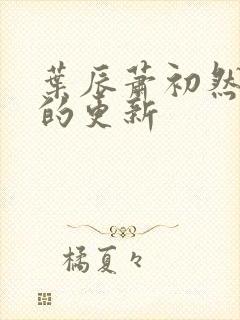 葉辰蕭初然
的更新
橘夏々